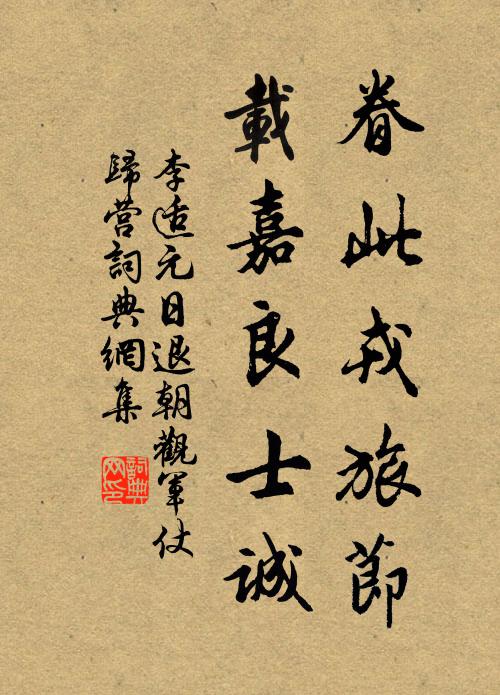 眷此戎旅節
載嘉良士誠
李适元日退朝觀軍仗
歸營詞典網集
詞典網印